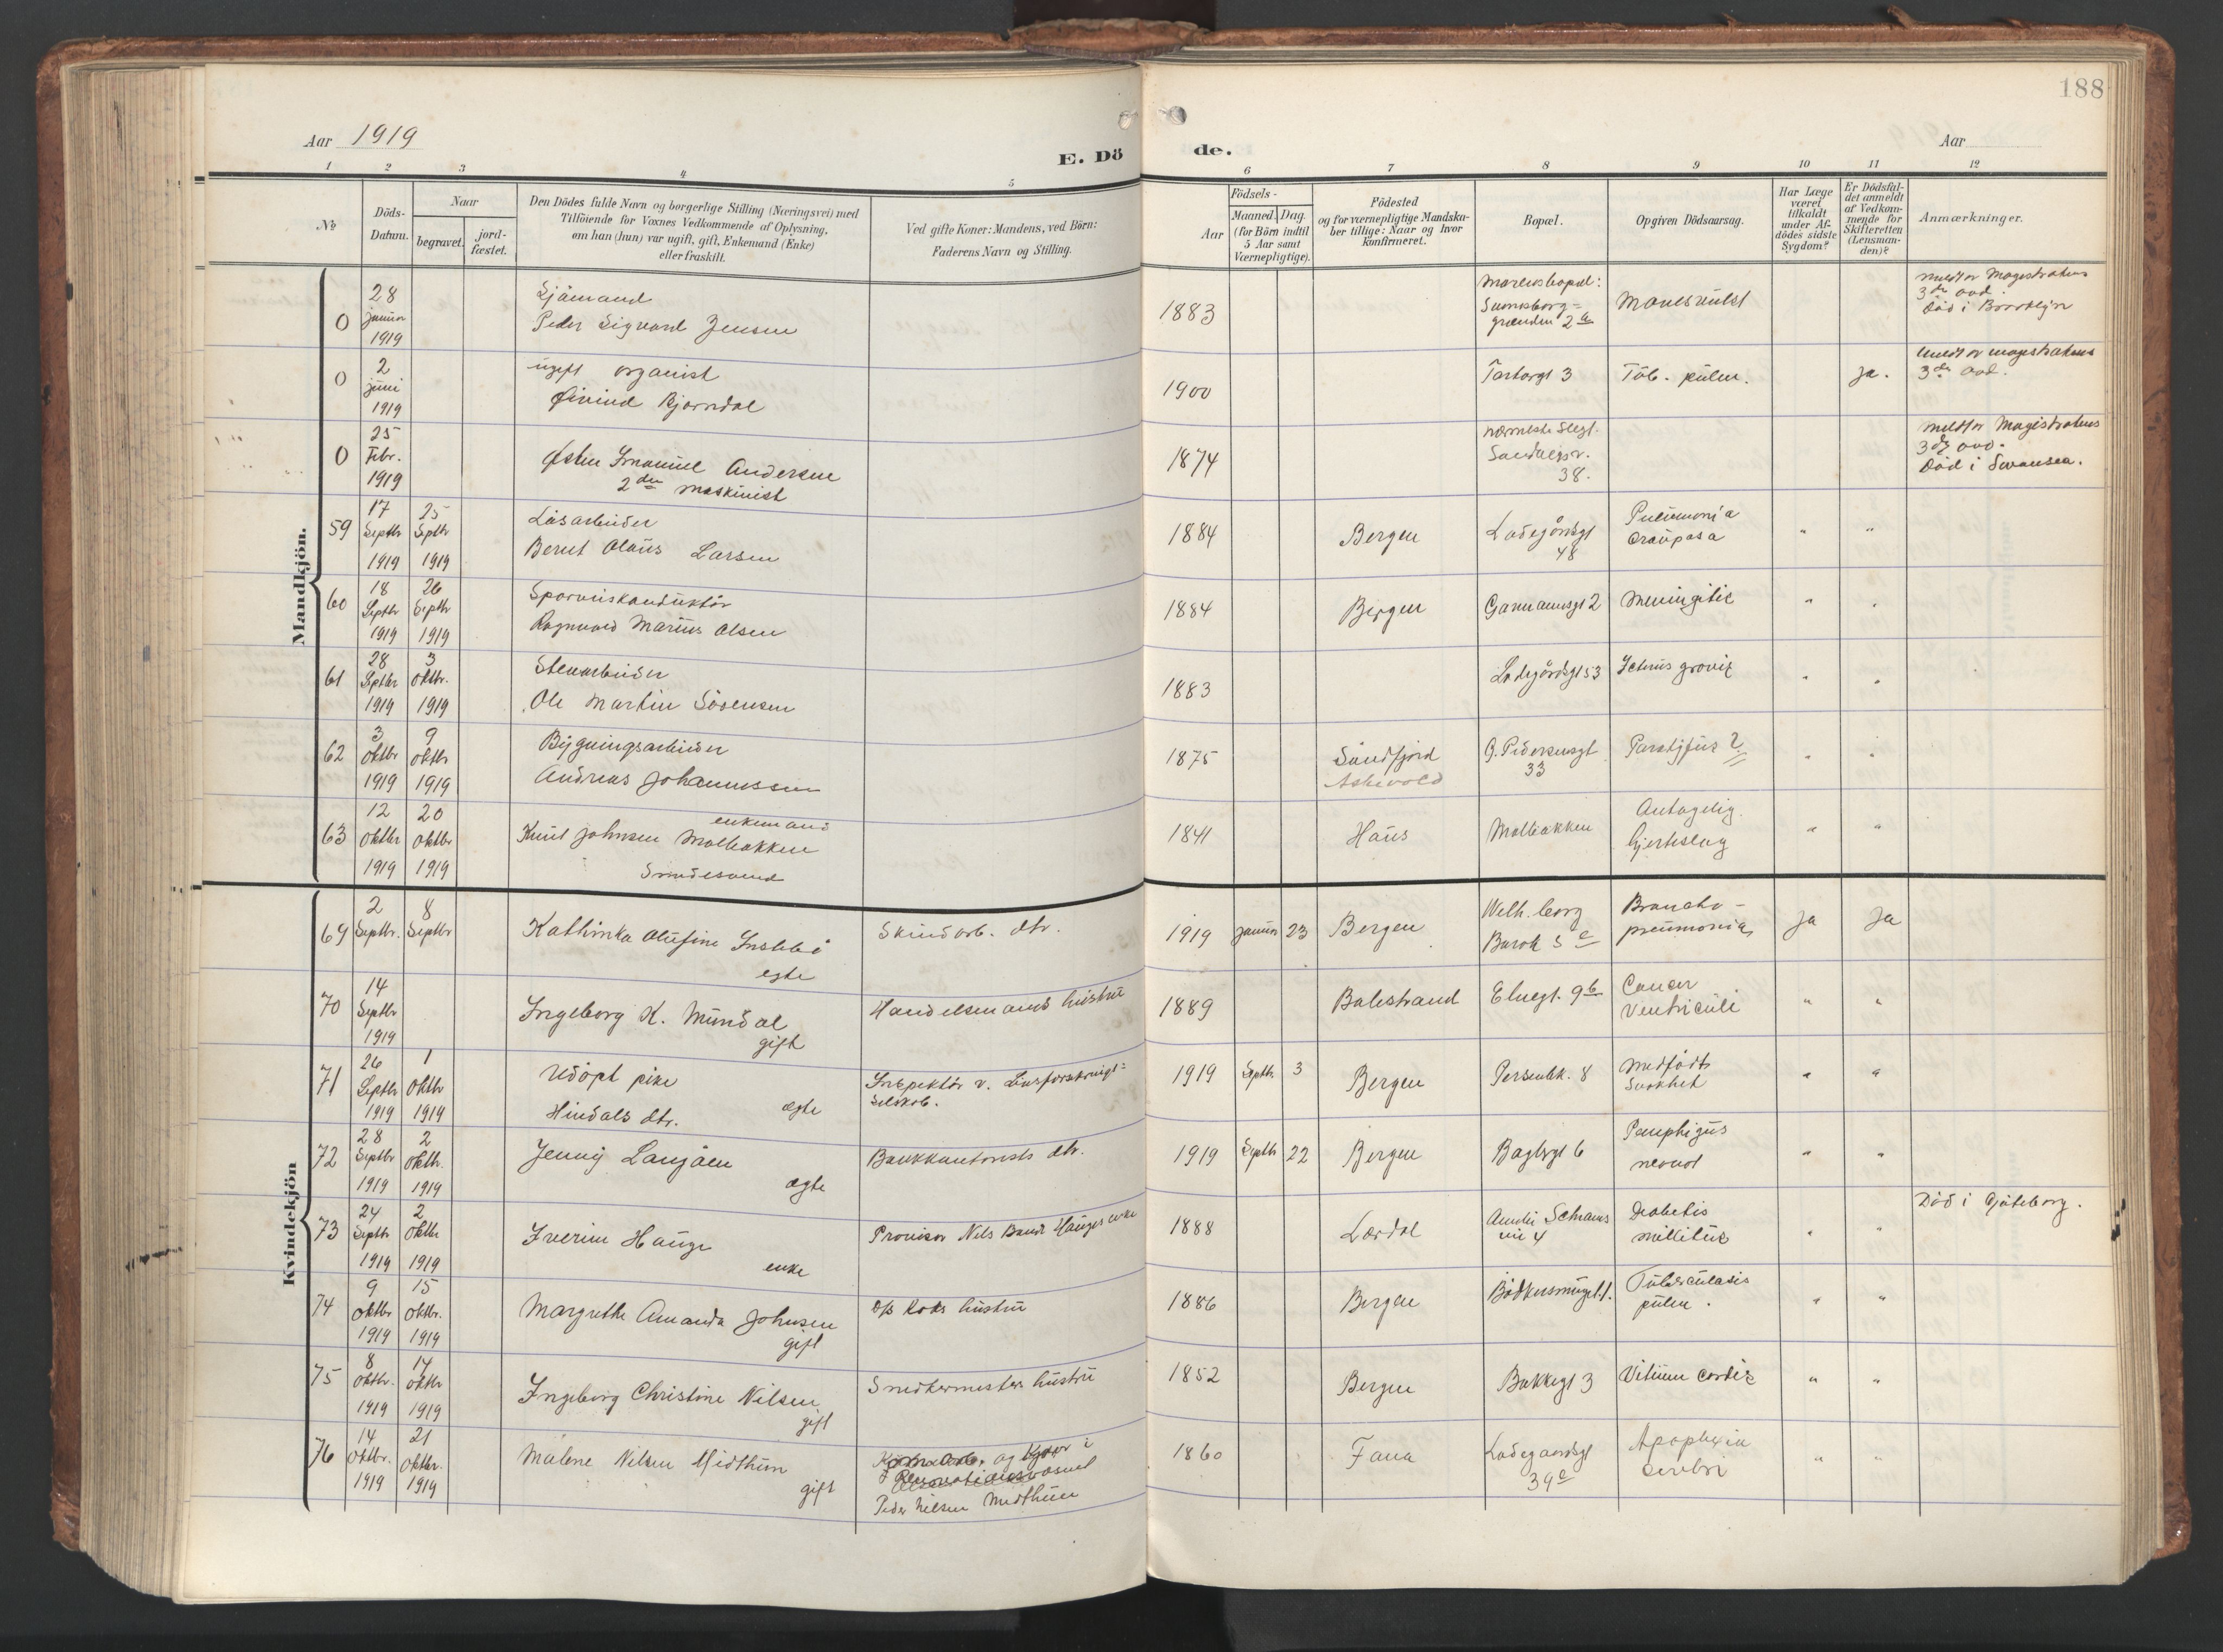 188
Aar 1919
E. Dö
de.
Aar
1 2 3 4 5 6 7 8 9 10 11 12
No
Döds-Datum.
Naar
begravet.
jord-fæstet.
Den Dödes fulde Navn og borgerlige Stilling (Næringsvei) med
Tilföiende for Voxnes Vedkommende af Oplysning,
om han (hun) var ugift, gift, Enkemand (Enke)
eller fraskilt.
Ved gifte Koner: Mandens, ved Börn:
Faderens Navn og Stilling.
Födsels-
Aar
Maaned. Dag.
(for Börn indtil
5 Aar samt
Værnepligtige).
Födested
og for værnepligtige Mandska-
ber tillige: Naar og hvor
konfirmeret.
Bopæl.
Opgiven Dödsaarsag.
Har Læge
været
tilkaldt
under Af-
dödes sidste
Sygdom?
Er Dödsfal-
det anmeldt
af Vedkom-
mende for
Skifteretten
(Lensman-
den)?
Anmærkninger.
Mandkjön.
0 28 januar 1919
Sjömand
Peder Sigvard Jensen
1883
2a
meldt av Magistratens
3die avd.
Död i Brooklyn
0 2 juni 1919
ugift organist
Øivind Bjorndal
1900
Torborgt 3
Tub. pulm.
ja.
meldt av magistratens
3die avd.
0 25 Febr. 1919
Østen Emanuel Andersen
2den maskinist
1874
nærmeste Slegt.
38.
meldt av Magistratens
3die avd.
Död i Swansea.
59 17 Septbr 1919 25 Septbr 1919
Løsarbeider
Bernt Olaus Larsen
1884
Bergen
Ladegårdsgt
48
Pneumonia
crouposa
" "
60 18 Septbr 1919 26 Septbr 1919
Sporveiskonduktör
Ragnvald Marius Olsen
1884
Bergen
Meningitis
" "
61 28 Septbr 1919 3 oktbr. 1919
Stenarbeider
Ole Martin Sörensen
1883
Ladegårdsgt 53
Icterus gravis
" "
62 3 oktbr 1919 9 oktbr 1919
Bygningsarbeider
Andreas Johannessen
1875
Sundfjord
Askevold
G. Pedersensgt
33
Paratyfus ?
" "
63 12 oktbr 1919 20 oktbr 1919
enkemand
Knut Johnsen Molbakken
Smedesvend
1841
Haus
Molbakken
Antagelig
hjerteslag
" "
Kvindekjön
69 2 Septbr. 8 Septbr
Kathinka Olufine
egte
Skindarb. dtr.
1919 januar 23
Bergen
Broncho-
pneumonia
ja ja
70 14 Septbr 1919
Ingeborg K. Mundal
gift
Handelsmands hustru
1889
Balestrand
Elvegt. 9b
Cancer
Ventriculi
" "
71 26 Septbr 1919 1 oktbr 1919
Udöpt pike
Hindals dtr.
ægte
Inspektör v. Livsforsikrings-
selskab.
1919 Septbr. 3
Bergen
Persenbk. 8
Medfödt
Svakhet
" "
72 28 Septbr 1919 2 oktbr. 1919
Jenny Langåen
ægte
Bankkontorists dtr.
1919 Septbr 22
Bergen
Baglergt 6
Pemphigus
neonat
" "
73 24 Septbr 1919 2 oktbr 1919
Iverine Hauge
enke
Provisor Nils Hauges enke
1888
Lærdal
4
Diabetis
mellitus
" "
Död i Gjöteborg.
74 9 oktbr 1919 15 oktbr. 1919
Margrethe Amanda Johnsen
gift
D/s Koks hustru
1886
Bergen
Bödkersmuget 1.
Tuberculosis
pulm.
" "
75 8 oktbr. 1919 14 oktbr 1919
Ingeborg Christine Nilsen
gift
Snedkermesters hustru
1852
Bergen
Bakkegt 3
Vitium cordis
" "
76 14 oktbr. 1919 21 oktbr. 1919
Malene Nilsen Midthun
gift
Peder Nilsen Midthun
1860
Fana
Ladegaardsgt
39e
Apoplexia
cerebri
" "